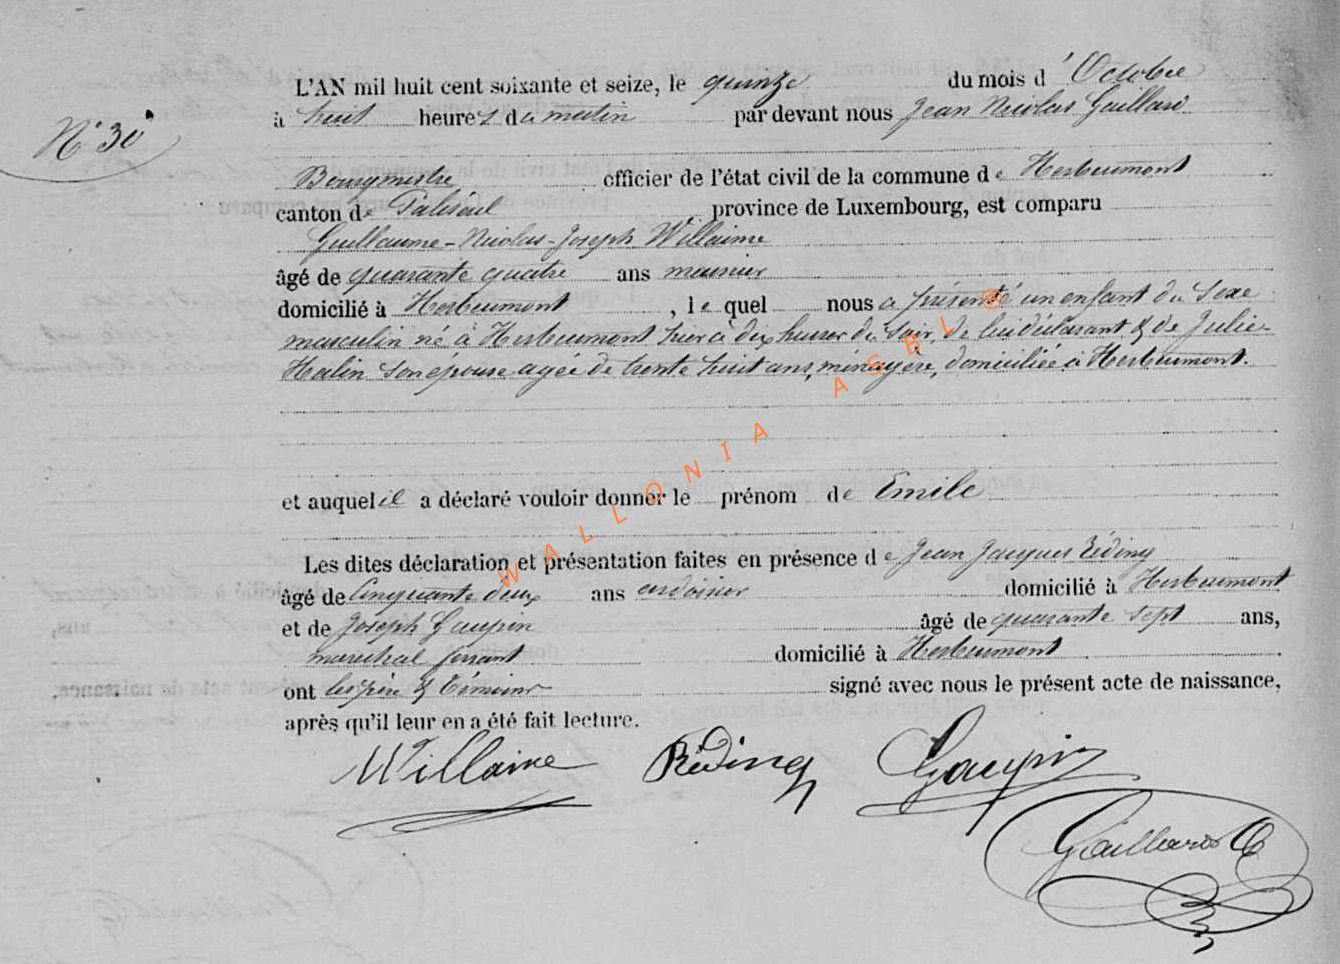 N° 30
L'AN mil huit cent soixante et seize, le quinze du mois d'Octobre
à huit heures du matin par devant nous Jean Nicolas Gaillard
Bourgmestre officier de l'état civil de la commune de Herbeumont
canton de Paliseul province de Luxembourg, est comparu
Guillaume-Nicolas-Joseph Willaime
âgé de quarante quatre ans meunier
domicilié à Herbeumont, le quel nous a présenté un enfant du Sexe
masculin né à Herbeumont hier à dix heures du soir, de lui déclarant & de Julie
Halin son épouse agée de trente huit ans, ménagère, domiciliée à Herbeumont.
et auquel il a déclaré vouloir donner le prénom de Emile
Les dites déclaration et présentation faites en présence de Jean Jacques Réding
âgé de Cinquante deux ans ardoisier domicilié à Herbeumont
et de Joseph Gaupin âgé de quarante sept ans,
marechal ferrant domicilié à Herbeumont
ont les père & témoins signé avec nous le présent acte de naissance,
après qu'il leur en a été fait lecture.
Willaime Réding Gaupin
Gaillard
WALLONIA ASBL ®